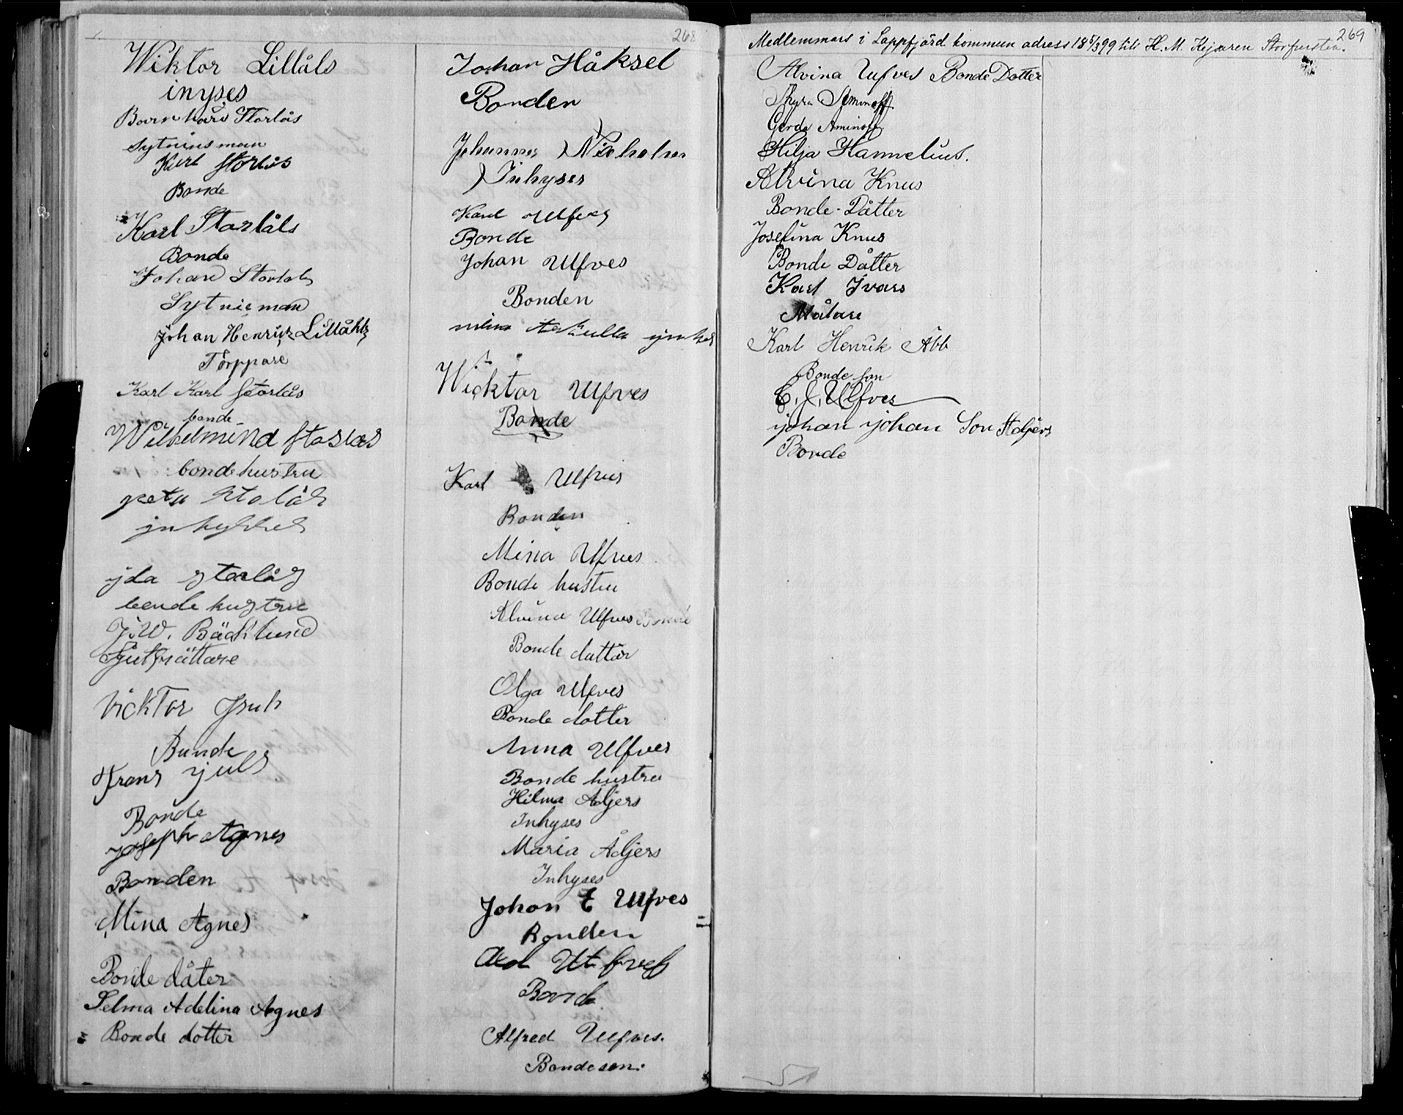 268
Wiktor Lillåls
inyses
Barnhård Storlås
Sytnins man
Karl Storlås
Bonde
Karl Storlåls
Bonde
Johan Storlås
Sytnisman
Johan Henrik Lillåhls
Torppare
Karl Karl Storlås
bonde
Wilhelmina Storlås
bondehustru
greta Storlås
ynhysses
ida Storlås
bonde hustru
J.W. Bäcklund
Sjutsrättare
Vicktor Juls
Bunde
Frans Juls
Bonde
Joseph Agnes
Bonden
Mina Agnes
Bonde dåter
Selma Adelina Agnes
Bonde dotter
Johan Håksel
Bonden
Johannes
Inhyses
Karl Ulfves
Bonde
Johan Ulfves
Bonden
Wicktor Ulfves
Bonde
Karl Ulfves
Bonden
Mina Ulfves
Bonde hustru
Alvina Ulfves
Bonde dattär
Olga Ulfves
Bonde dotter
Anna Ulfves
Bonde hustru
Hilma Åbjers
Inhyses
Maria Åbjers
Inhyses
Johan E Ulfves
Bonden
Ulfves
Bonde
Alfred Ulfves.
Bondeson.
269
Medlemmars i Lappfjärd kommun adress 18 5/3 99 till H. M. Kejsaren Storfursten.
Alvina Ulfves Bonde Dotter
Thyra Aminoff
Gerda Aminoff
Hilja Hannelius.
Alvina Knus
Bonde-Dåtter
Josefina Knus
Bonde Dåtter
Karl Ivars
Målare
Karl Henrik Åbb
Bonde son
C. J. Ulfves
johan johan Son Åbjers
Bonde